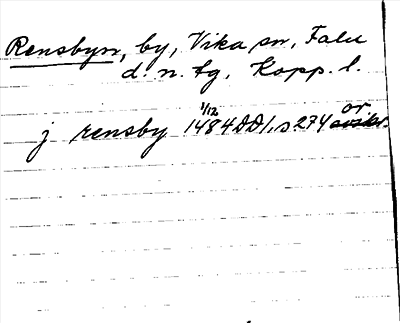 Rensbyn, by, Vika sn, Falu
d. n. tg, Kopp. l.
j rensby 1/12 1484 DD1, s. 274 or